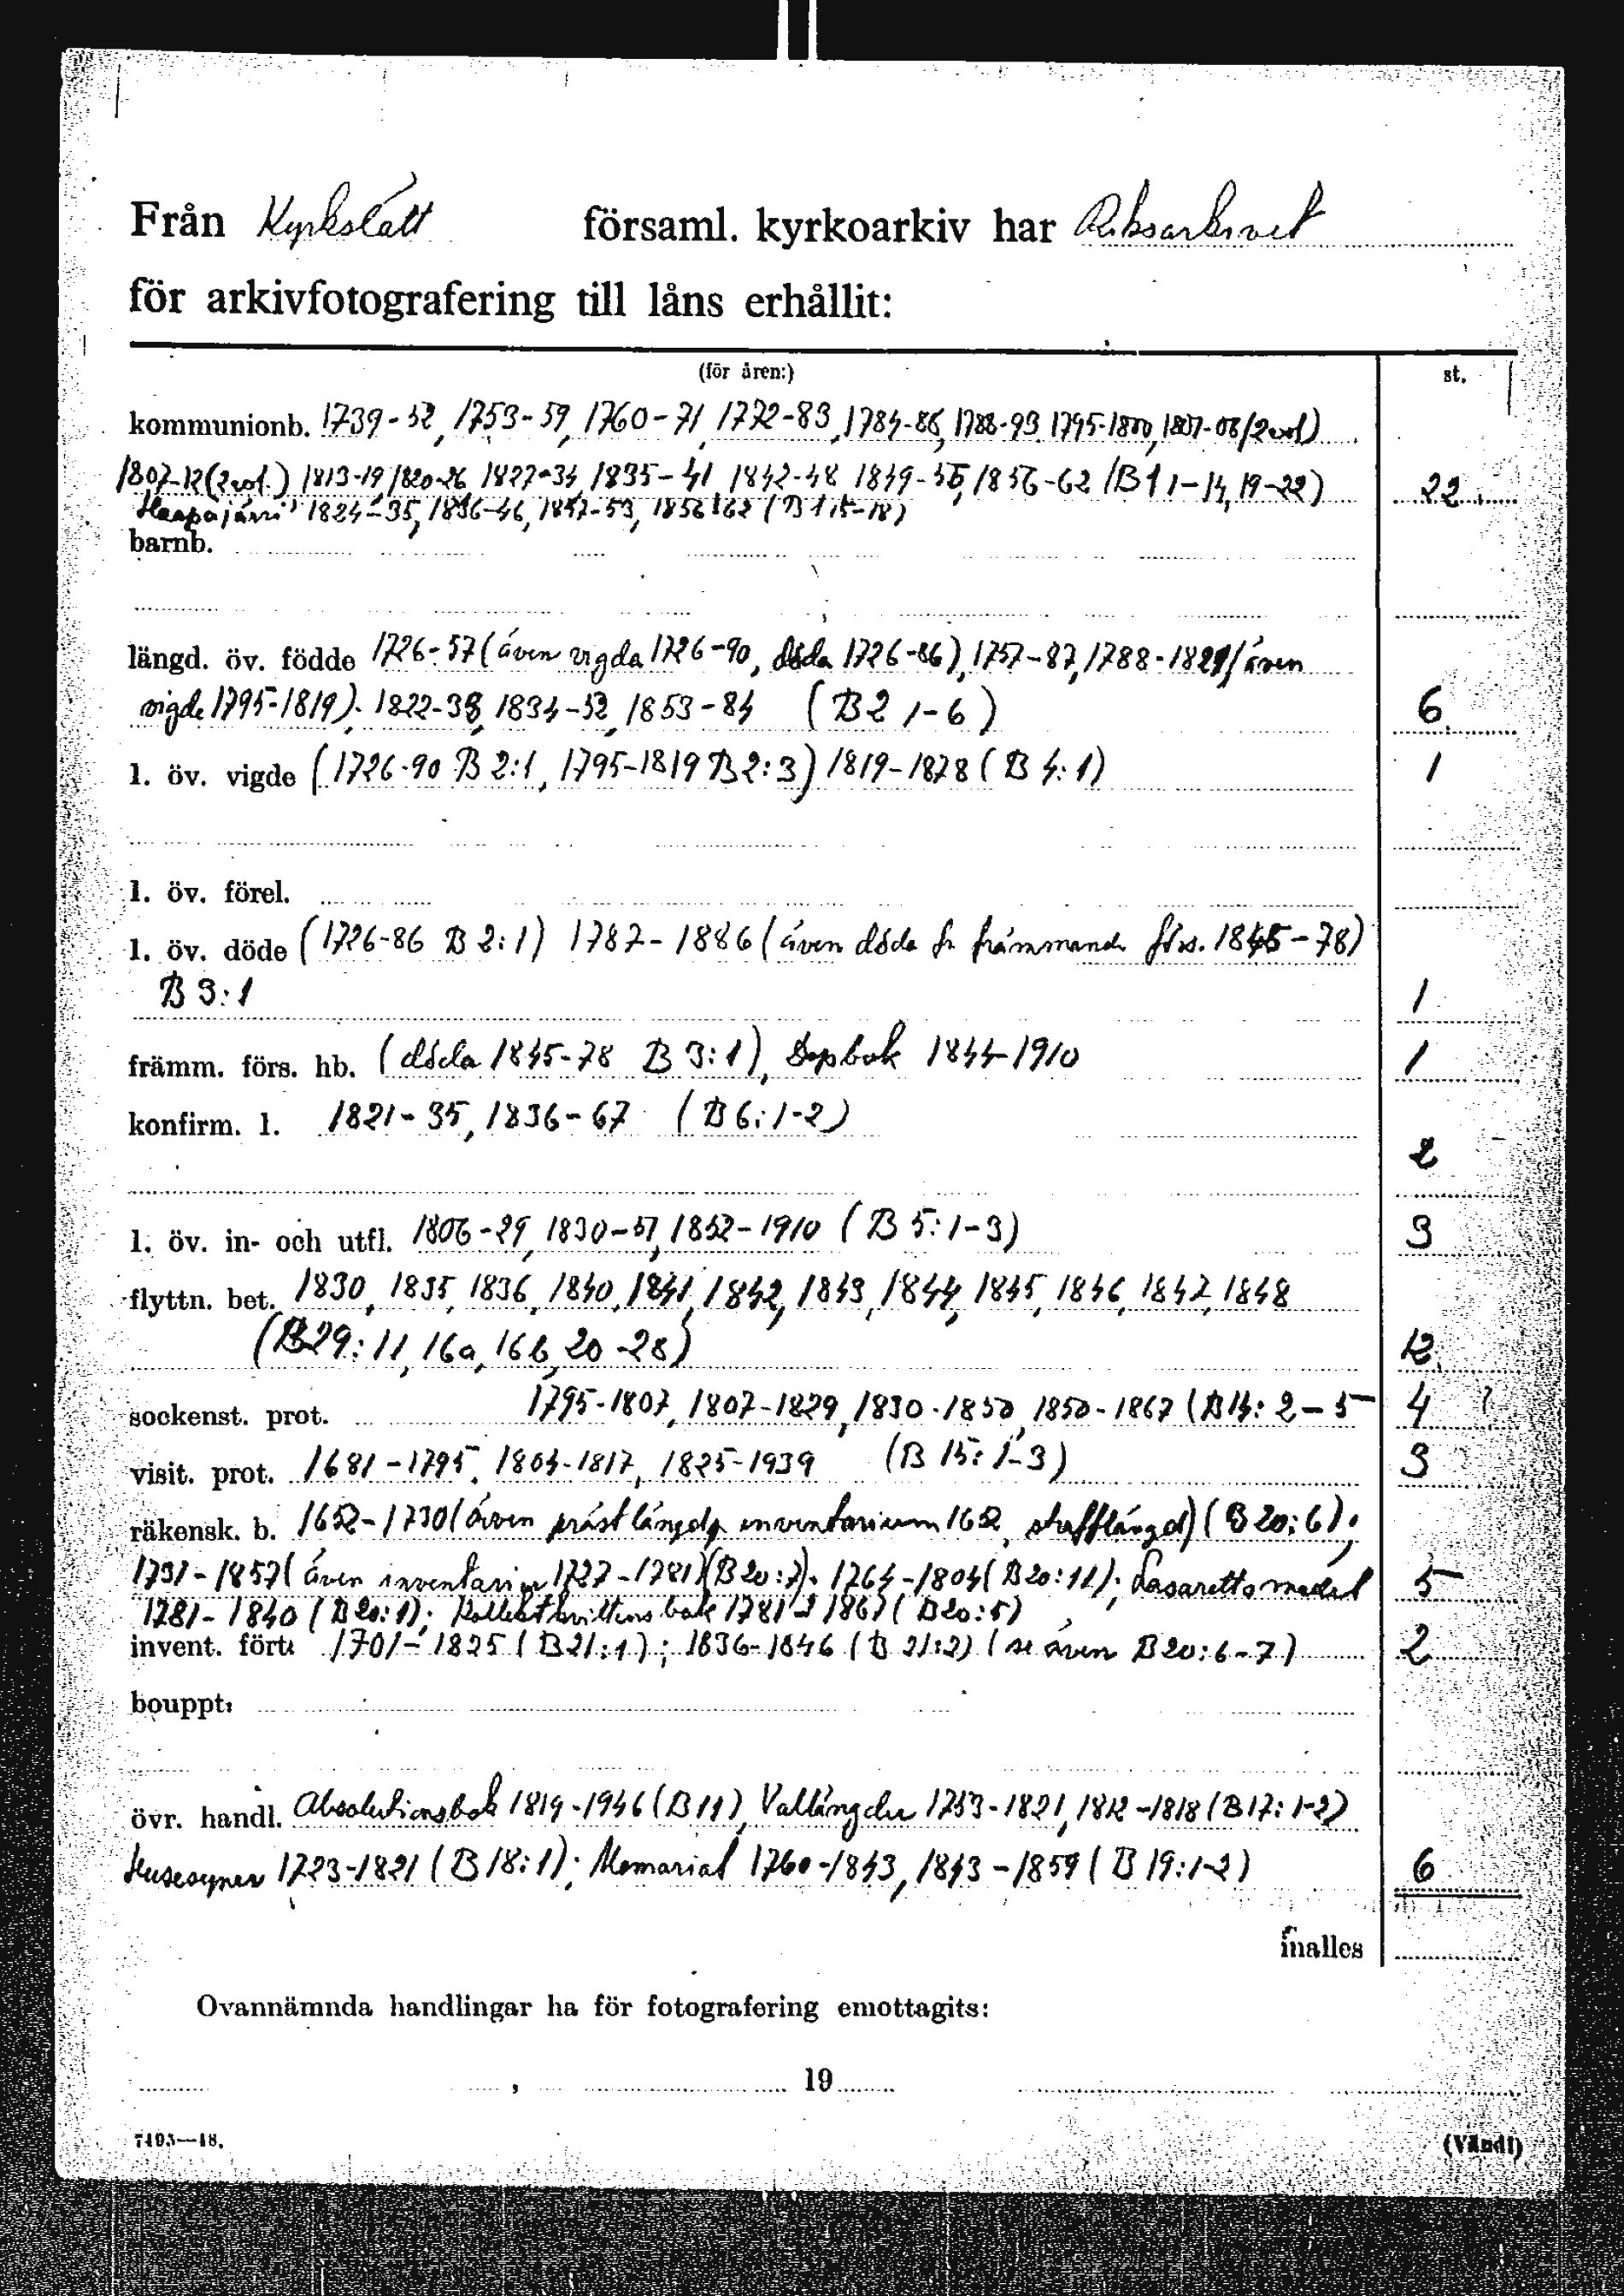 Från Kyrkslätt församl. kyrkoarkiv har Riksarkivet
för arkivfotografering till låns erhållit:
(för åren:) st.
kommunionb. 1739-52, 1753-59, 1760-71, 1772-83, 1784-86, 1788-93, 1795-1800, 1807-08 (2 vol)
1807-12 (2 vol.) 1813-19, 1820-26 1827-34, 1835-41 1842-48 1849-55, 1856-62 (B 1 1-14, 19-22) 22
Haapajärvi 1824-35, 1836-46, 1847-53, 1856-62 (B 1 15-18)
barnb.
längd. öv. födde 1726-57 (även vigda 1726-90, döda 1726-86), 1757-87, 1788-1821 (även
vigde 1795-1819). 1822-38, 1834-52, 1853-84 (B 2 1-6) 6
l. öv. vigde (1726-90 B 2:1, 1795-1819 B 2:3) 1819-1878 (B 4:1) 1
l. öv. förel.
l. öv. döde (1726-86 B 2:1) 1787-1886 (även döda fr främmande förs. 1845-78)
B 3:1 1
främm. förs. hb. (döda 1845-78 B 3:1), Dopbok 1844-1910 1
konfirm. l. 1821-35, 1836-67 (B 6:1-2)
2
l. öv. in- och utfl. 1806-29, 1830-51, 1852-1910 (B 5:1-3) 3
flyttn. bet. 1830, 1835, 1836, 1840, 1841, 1842, 1843, 1844, 1845, 1846, 1847, 1848
(B29: 11, 16a, 16b, 20-28) 12
sockenst. prot. 1795-1807, 1807-1829, 1830-1850, 1850-1867 (B 14: 2-5 4
visit. prot. 1681-1795, 1804-1817, 1825-1939 (B 15: 1-3) 3
räkensk. b. 1652-1730 (även prästlängd, inventarium 1652, strafflängd) (B 20:6);
1731-1857 (även inventarier 1727-1781) (B 20:7); 1764-1804 (B 20:11); Lasarettsmedel 5
1781-1840 (B 20:1); Kollektkvittensbok 1781-1867 (B20:5)
invent. fört: 1701-1825 (B 21:1); 1836-1846 (B 21:2) (se även B 20:6-7) 2
bouppt:
övr. handl. Absolutionsbok 1819-1946 (B 11), Vallängder 1753-1821, 1812-1818 (B 17: 1-2)
Husesyner 1723-1821 (B 18:1); Memorial 1760-1843, 1843-1859 (B 19:1-2) 6
inalles
Ovannämnda handlingar ha för fotografering emottagits:
, 19
7493—48.
(Vänd!)